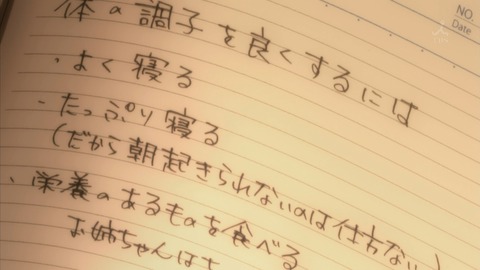 NO.
Date
体の調子を良くするには
・よく寝る
・たっぷり寝る
(だから朝起きられないのは仕方ない)
・栄養のあるものを食べる
お姉ちゃんは